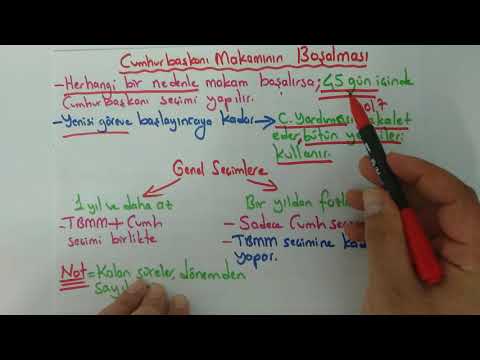 Cumhurbaşkanı Makamının Boşalması
- Herhangi bir nedenle makam boşalırsa; 45 gün içinde
Cumhurbaşkanı seçimi yapılır.
2017
- Yenisi göreve başlayıncaya kadar → C. Yardımcısı vekalet
eder, bütün yetkileri
kullanır.
Genel Seçimlere
1 yıl ve daha az
Bir yıldan
- TBMM + Cumh
seçimi birlikte
- Sadece Cumh
- TBMM seçimine
yapar.
Not = Kalan süreler, dönemden